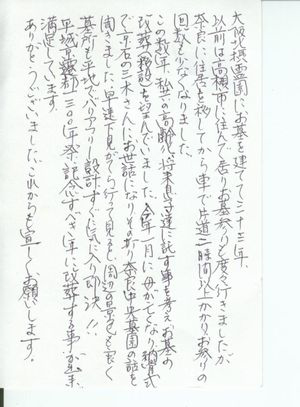 大阪北摂霊園にお墓を建てて三十三年、
以前は高槻市に住んで居りお墓参りも度々行きましたが
奈良に住居を移してから車で片道二時間以上かかりお参りの
回数も少なくなりました。
この数年、私共の高齢と将来息子達に託す事を考えお墓の
改葬移設を望んでいました。今年一月に母が亡くなり納骨式
で京石の三木さんにお世話になりその折り奈良中央墓園の話を
聞きました。早速下見がてら行って見ると周辺の景色も良く
墓所も平地でバリアフリー設計すぐ気に入り即決!!
平城京遷都一三〇〇年祭記念すべき年に改葬する事が出来
満足しています。
ありがとうございました。これからも宜しくお願いします。